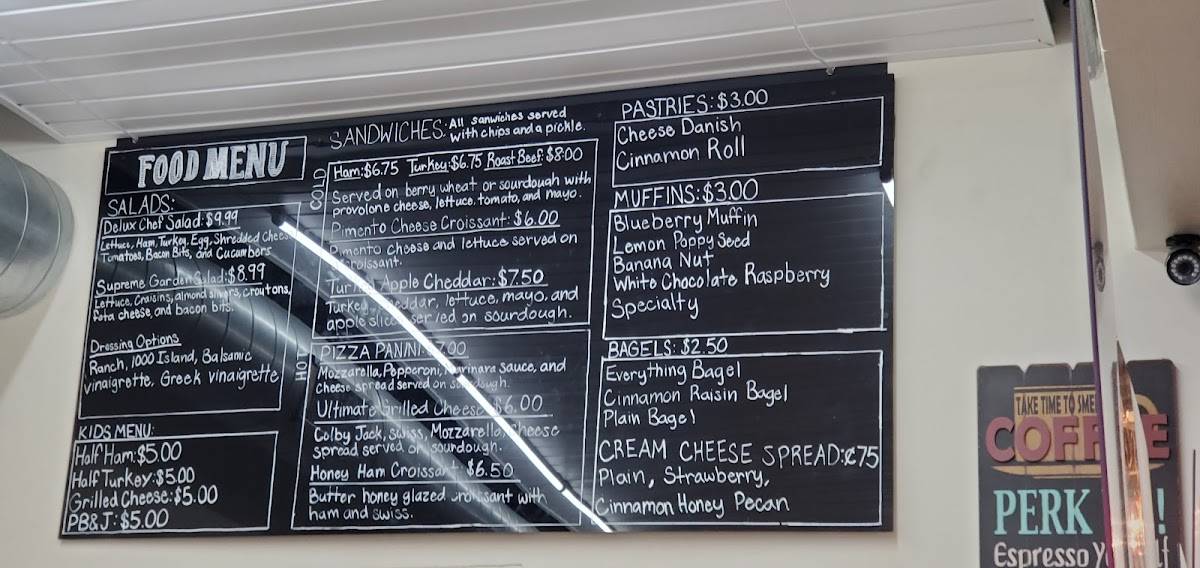 FOOD MENU
SALADS:
Delux Chef Salad: $9.99
Lettuce, Ham, Turkey, Egg, Shredded
Tomatoes, Bacon Bits, and Cucumbers
Supreme Garden Salad: $8.99
Lettuce, Craisins, almond slivers, croutons,
feta cheese, and bacon bits.
Dressing Options
Ranch, 1000 Island, Balsamic
vinaigrette, Greek vinaigrette
KIDS MENU:
Half Ham: $5.00
Half Turkey: $5.00
Grilled Cheese: $5.00
PB&J: $5.00
SANDWICHES: All sanwiches served
with chips and a pickle.
COLD
Ham: $6.75 Turkey: $6.75 Roast Beef: $8.00
Served on berry wheat or sourdough with
provolone cheese, lettuce, tomato, and mayo.
Pimento Cheese Croissant: $6.00
Pimento cheese and lettuce served on
croissant.
Apple Cheddar: $7.50
Turkey, cheddar, lettuce, mayo, and
apple slices on sourdough.
HOT
PIZZA PANINI: $7.00
Mozzarella, Pepperoni, Marinara sauce, and
cheese spread served on sourdough.
Ultimate Grilled Cheese $6.00
Colby Jack, swiss, Mozzarella, cheese
spread served on sourdough.
Honey Ham Croissant: $6.50
Butter honey glazed croissant with
ham and swiss.
PASTRIES: $3.00
Cheese Danish
Cinnamon Roll
MUFFINS: $3.00
Blueberry Muffin
Lemon Poppy Seed
Banana Nut
White Chocolate Raspberry
Specialty
BAGELS: $2.50
Everything Bagel
Cinnamon Raisin Bagel
Plain Bagel
CREAM CHEESE SPREAD: ¢75
Plain, Strawberry,
Cinnamon Honey Pecan
TAKE TIME TO
COFFEE
PERK !
Espresso